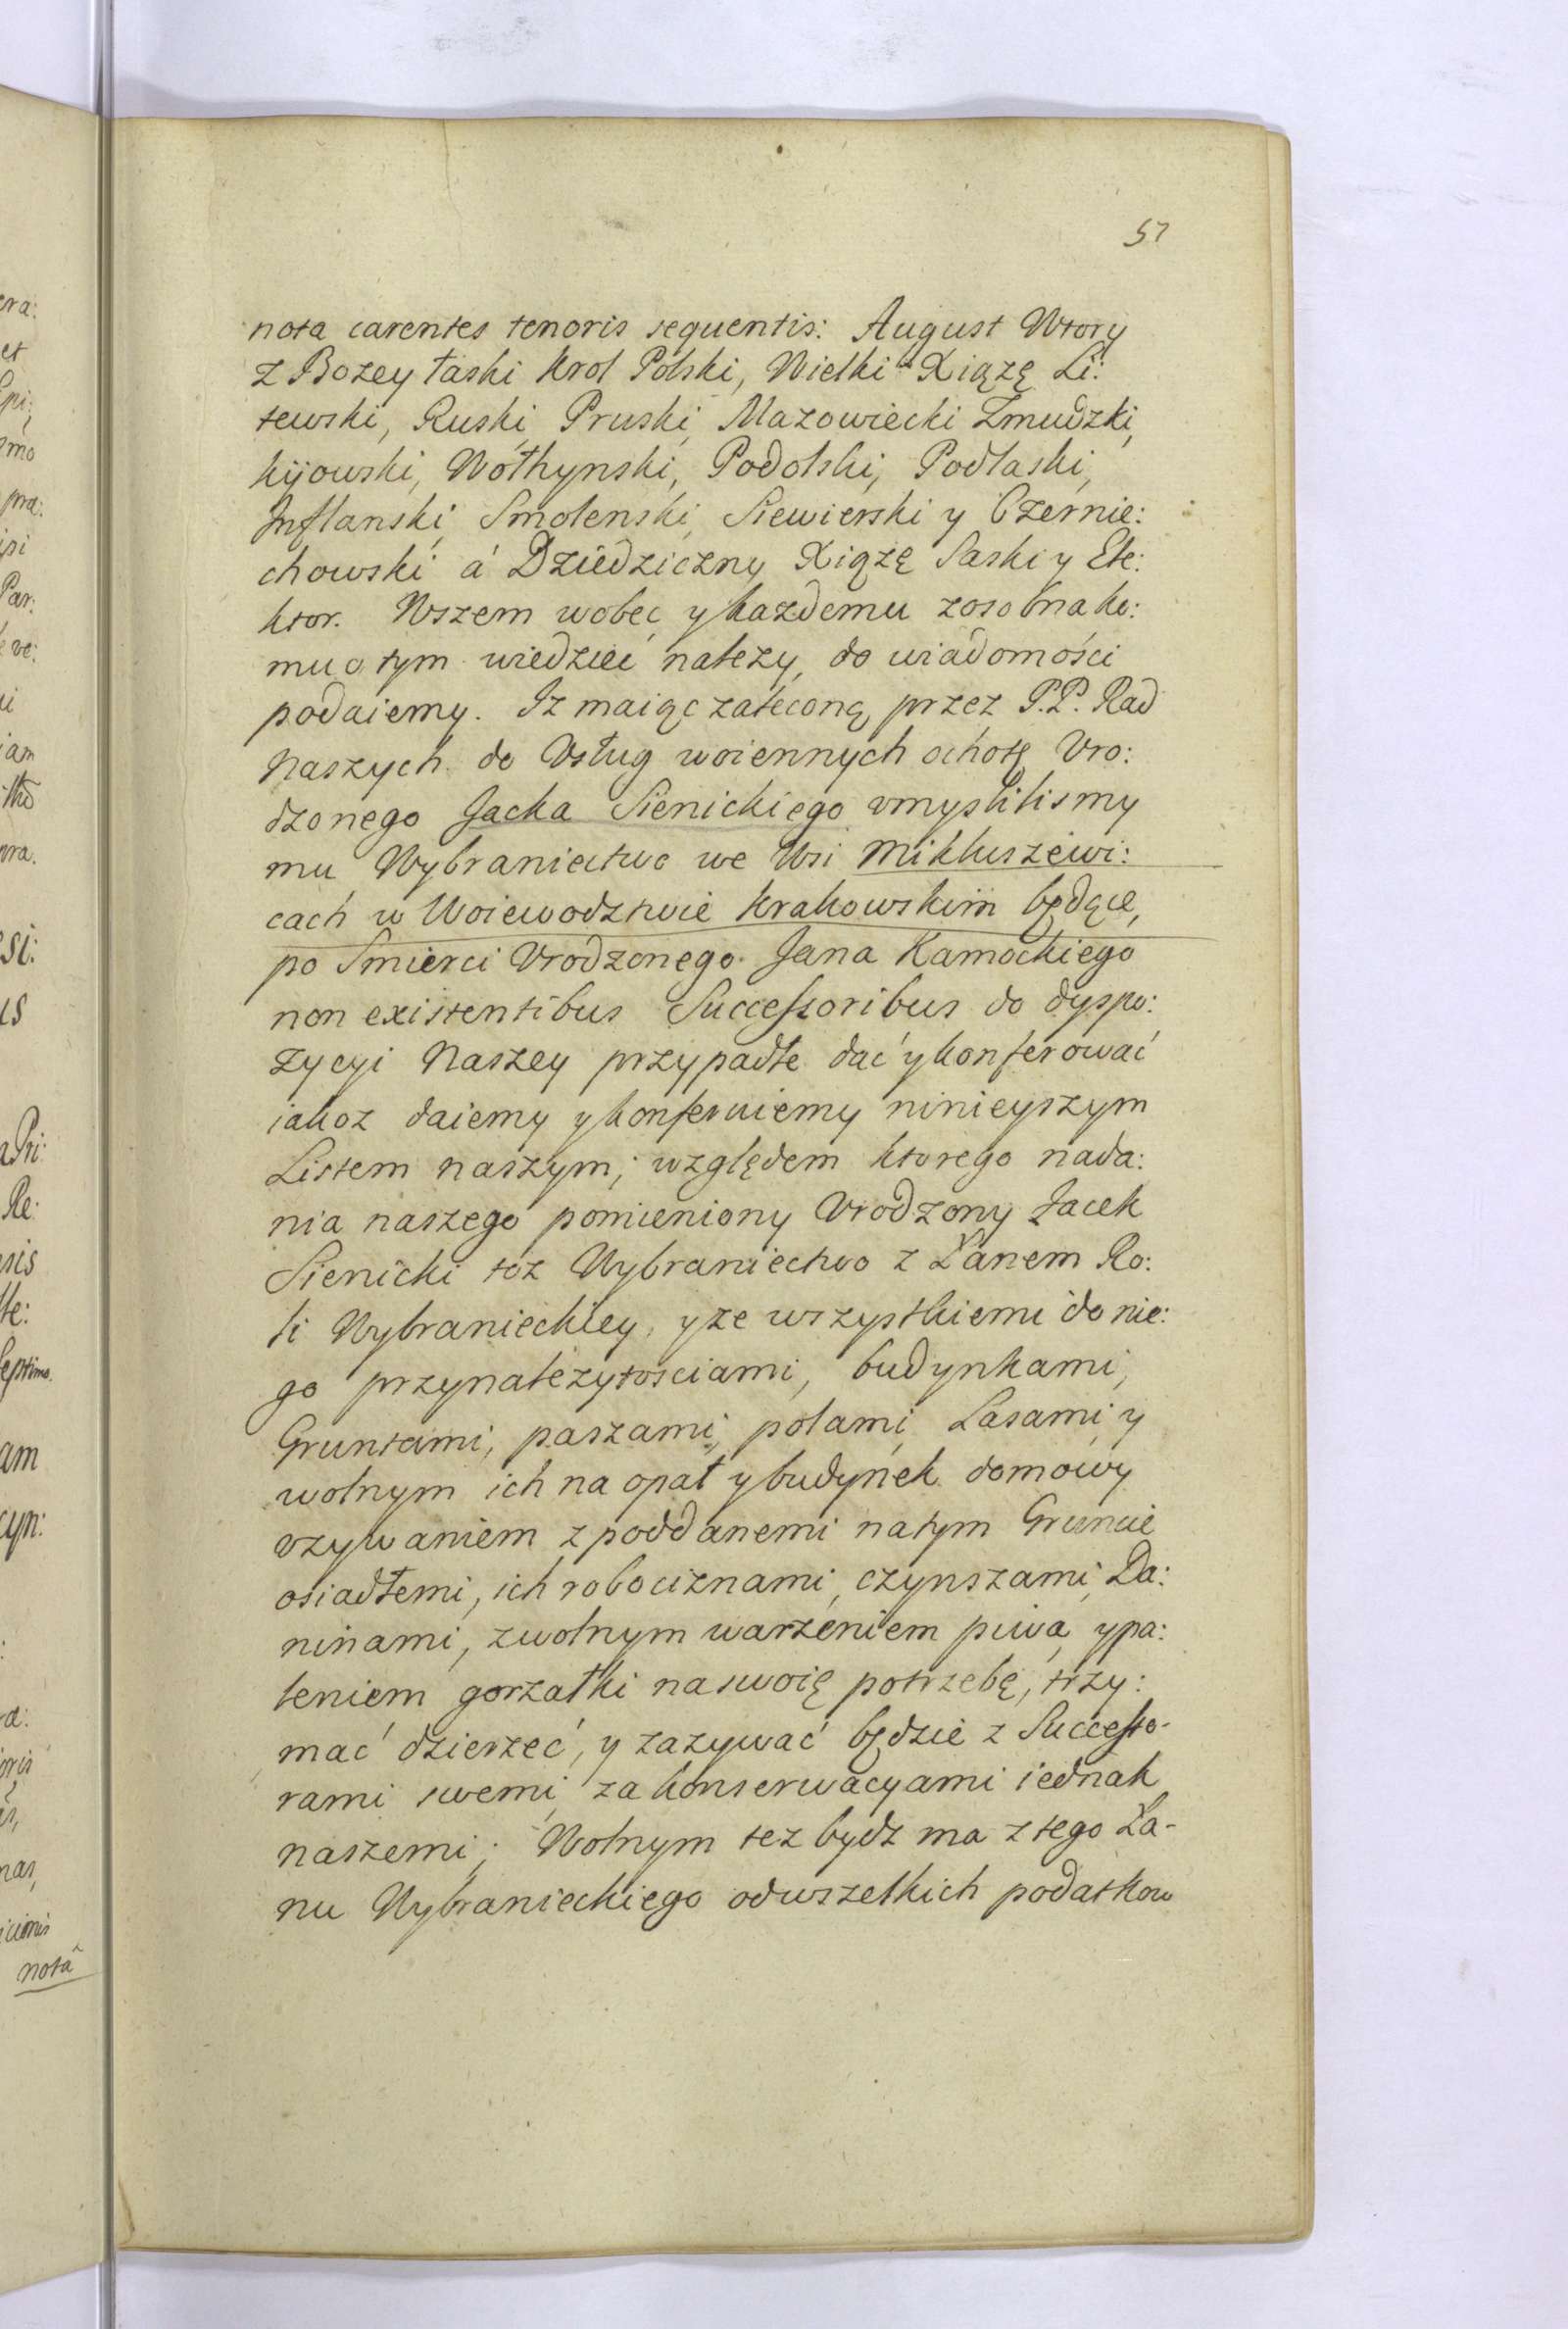 57
nota carentes tenoris sequentis: August Wtory
z Bozey łaski Krol Polski, Wielki Xiążę Li:
tewski, Ruski, Pruski, Mazowiecki Zmudzki,
kijowski, Wołhynski, Podolski, Podlaski,
Inflanski, Smolenski, Siewierski y Czernie:
chowski á Dziedziczny Xiążę Saski y Ele:
ktor. Wszem wobec y kazdemu zosobna ko:
mu o tym wiedzieć nalezy, do wiadomości
podaiemy. Iz maiąc zaleconą przez P.P. Rad
Naszych do Vsług woiennych ochotę Vro:
dzonego Jacka Sienickiego vmyslilismy
mu Wybraniectwo we Wsi Mikluszewi:
cach w Woiewodztwie Krakowskim będące,
po Smierci Vrodzonego Jana Kamockiego
non existentibus Successoribus do dyspo:
zycyi Naszey przypadłe dać y konferować
iakoz daiemy y konferuiemy ninieyszym
Listem naszym; względem ktorego nada:
nia naszego pomieniony Vrodzony Jacek
Sienicki toz Wybraniectwo z Łanem Ro:
li Wybranieckiey, y ze wszystkiemi do nie:
go przynależytosciami, budynkami,
Gruntami, paszami, polami, Lasami, y
wolnym ich na opał y budynek domowy
vzywaniem z poddanemi natym Gruncie
osiadłemi, ich robociznami, czynszami, Da:
ninami, zwolnym warzeniem piwa, ypa:
leniem gorzałki naswoię potrzebę, trzy:
mać dzierzeć, y zazywać będzie z Successo-
rami swemi, za konserwacyami iednak
naszemi; Wolnym tez bydz ma z tego Ła-
nu Wybranieckiego odwszelkich podatkow
nota